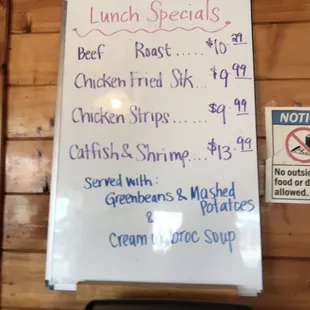 Lunch Specials
Beef Roast ..... $10 29
Chicken Fried Stk... $9 99
Chicken Strips ...... $9 99
Catfish & Shrimp.... $13 99
Served with:
Greenbeans & Mashed
Potatoes
&
Cream of broc Soup
NOTI
No outsi
food or d
allowed.